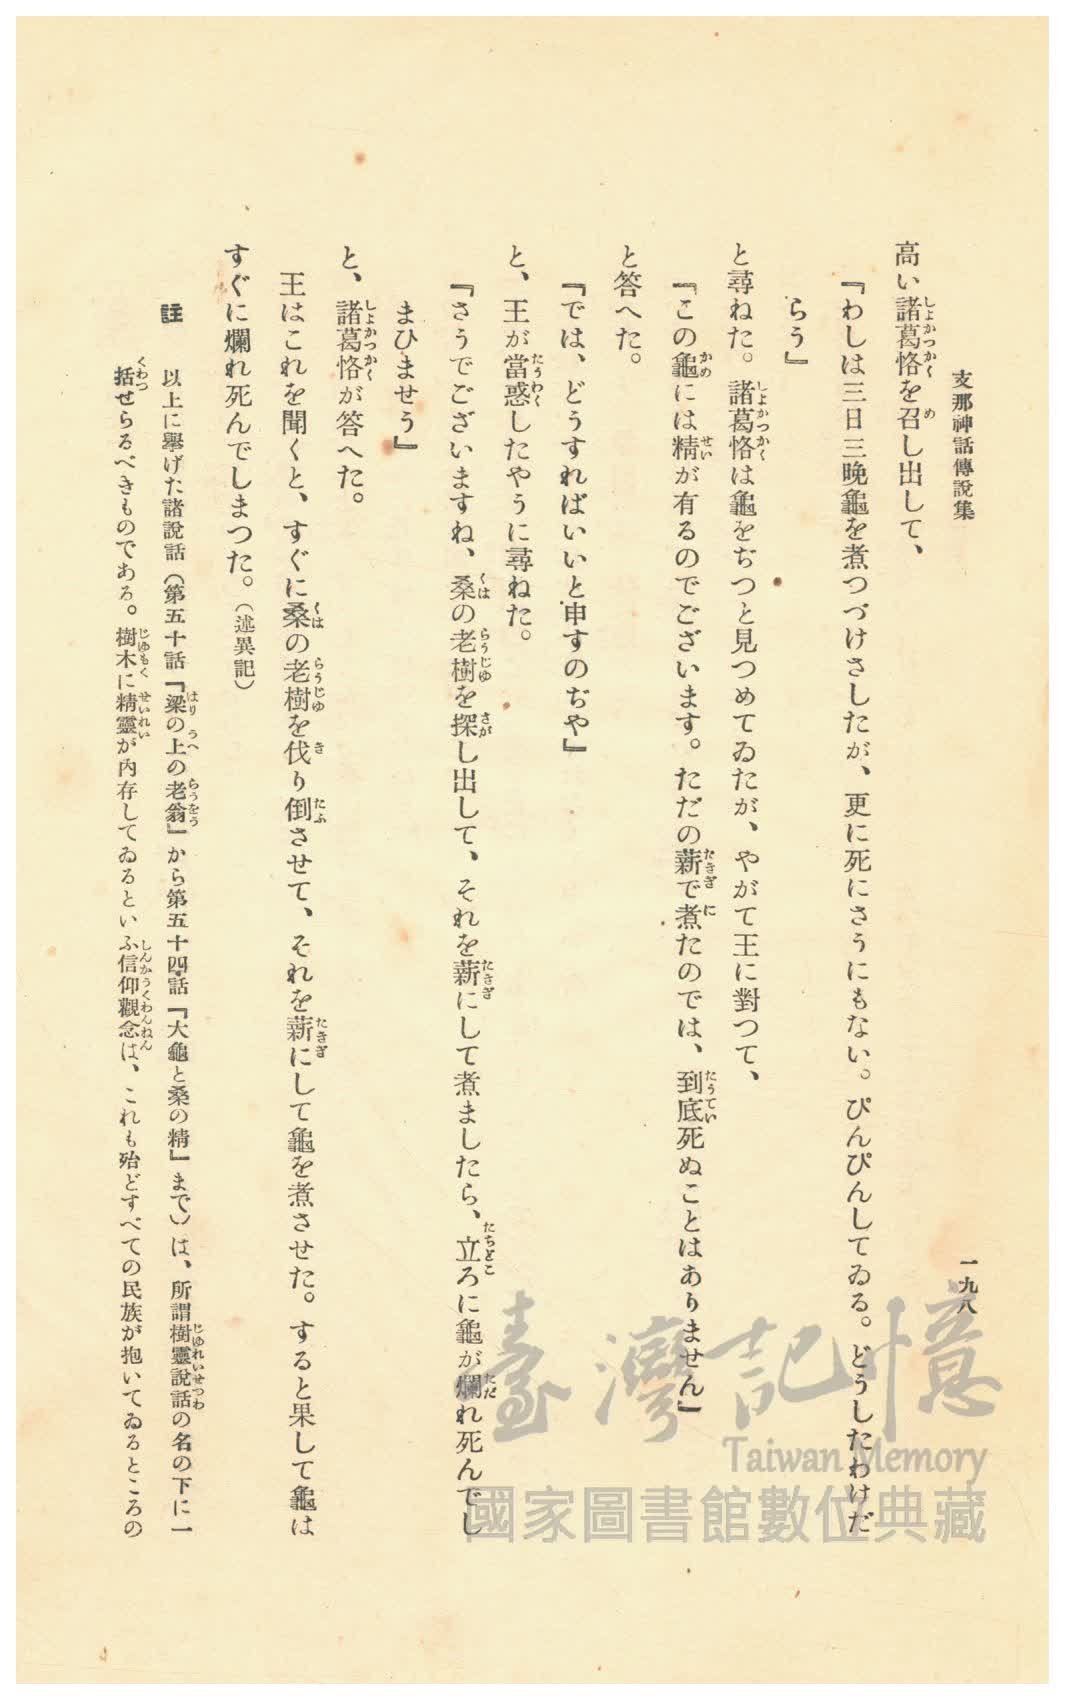 支那神話傳說集
一九八
高い諸葛恪を召し出して、
『わしは三日三晩龜を煮つづけさしたが、更に死にさうにもない。ぴんぴんしてゐる。どうしたわけだ
らう』
と尋ねた。諸葛恪は龜をぢつと見つめてゐたが、やがて王に對つて、
『この龜には精が有るのでございます。ただの薪で煮たのでは、到底死ぬことはありません』
と答へた。
『では、どうすればいいと申すのぢや』
と、王が當惑したやうに尋ねた。
『さうでございますね、桑の老樹を探し出して、それを薪にして煮ましたら、立ろに龜が爛れ死んでし
まひませう』
と、諸葛恪が答へた。
王はこれを聞くと、すぐに桑の老樹を伐り倒させて、それを薪にして龜を煮させた。すると果して龜は
すぐに爛れ死んでしまつた。（述異記）
註　以上に擧げた諸說話（第五十話『梁の上の老翁』から第五十四話『大龜と桑の精』まで）は、所謂樹靈說話の名の下に一
括せらるべきものである。樹木に精靈が內存してゐるといふ信仰觀念は、これも殆どすべての民族が抱いてゐるところの
臺灣記憶
Taiwan Memory
國家圖書館數位典藏